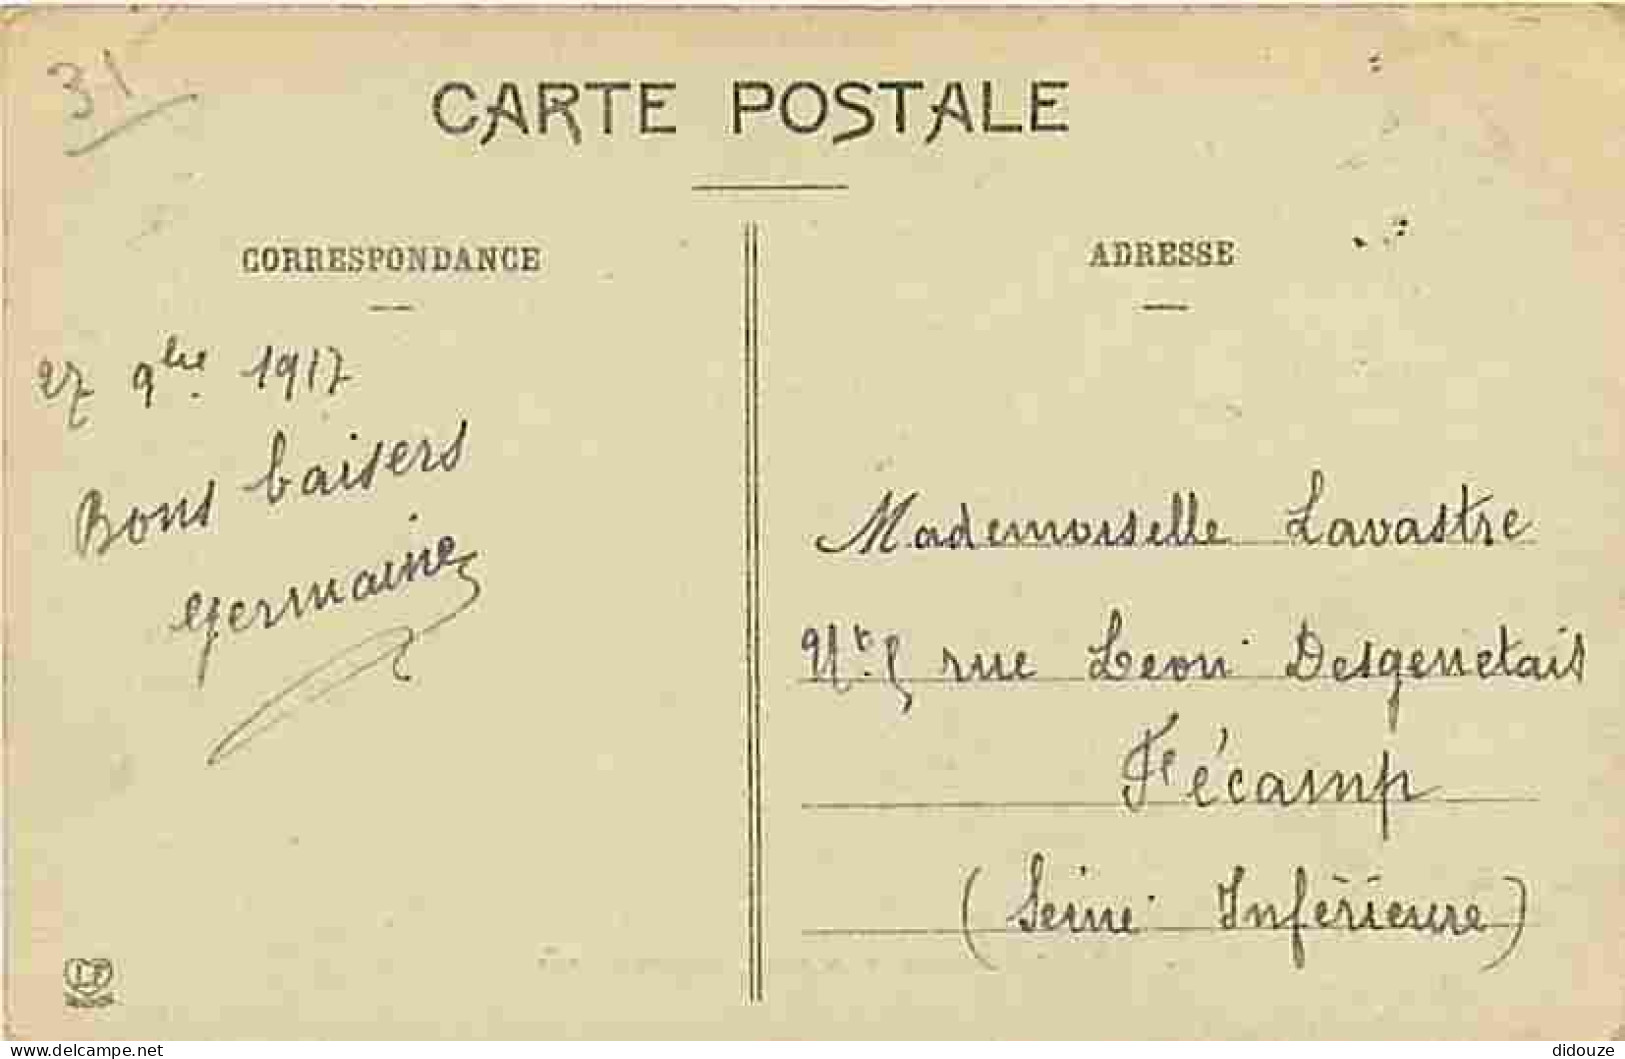 31
CARTE POSTALE
CORRESPONDANCE
27 9bre 1917
Bons baisers
Germaine
ADRESSE
Mademoiselle Lavastre
rue Leon Desgenetais
Fécamp
(Seine Inférieure)
LF
www.delcampe.net
didouze